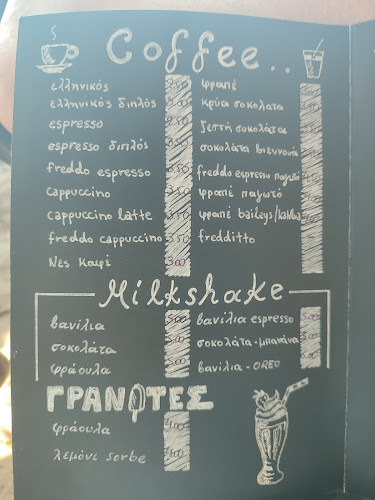 Coffee..
ελληνικός 2.50
ελληνικός διπλός 3.00
espresso 2.50
espresso διπλός 3.50
freddo espresso 3.50
cappuccino 3.50
cappuccino latte 3.50
freddo cappuccino 3.50
Νες καφέ 3.00
φραπέ
κρύα σοκολάτα
ζεστή σοκολάτα
σοκολάτα βιεννουά
freddo espresso παγωτό
φραπέ παγωτό
φραπέ baileys/kahlua
fredditto
Milkshake
βανίλια 5.00
σοκολάτα 5.00
φράουλα 5.00
βανίλια espresso 5.00
σοκολάτα-μπανάνα 5.00
βανίλια-OREO 5.00
ΓΡΑΝΙΤΕΣ
φράουλα 4.00
λεμόνι sorbe 4.00